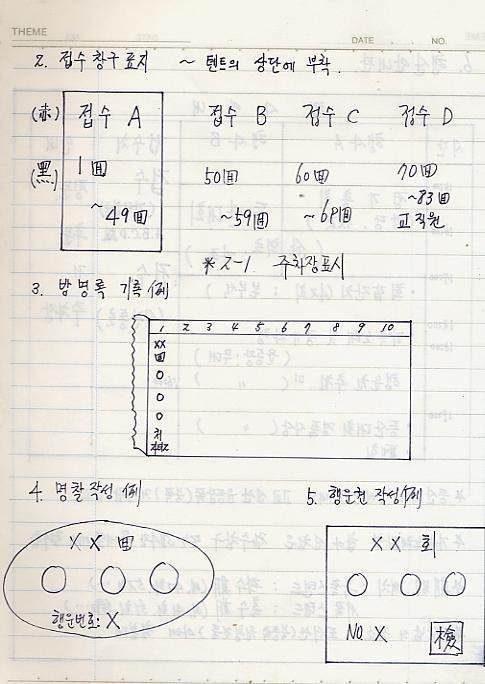 THEME
DATE NO.
2. 접수창구 표지 ~ 텐트의 상단에 부착.
(赤) 접수 A 접수 B 접수 C 접수 D
(黑) 1回 50回 60回 70回
~49回 ~59回 ~69回 ~83回
교직원
*2-1. 주차장표시
3. 방명록 기록 例
1 2 3 4 5 6 7 8 9 10
XX
回
○
○
○
4. 명찰작성 例 5. 행운권 작성 例
XX 回 XX 회
○ ○ ○ ○ ○ ○
행운번호: X No. X 檢